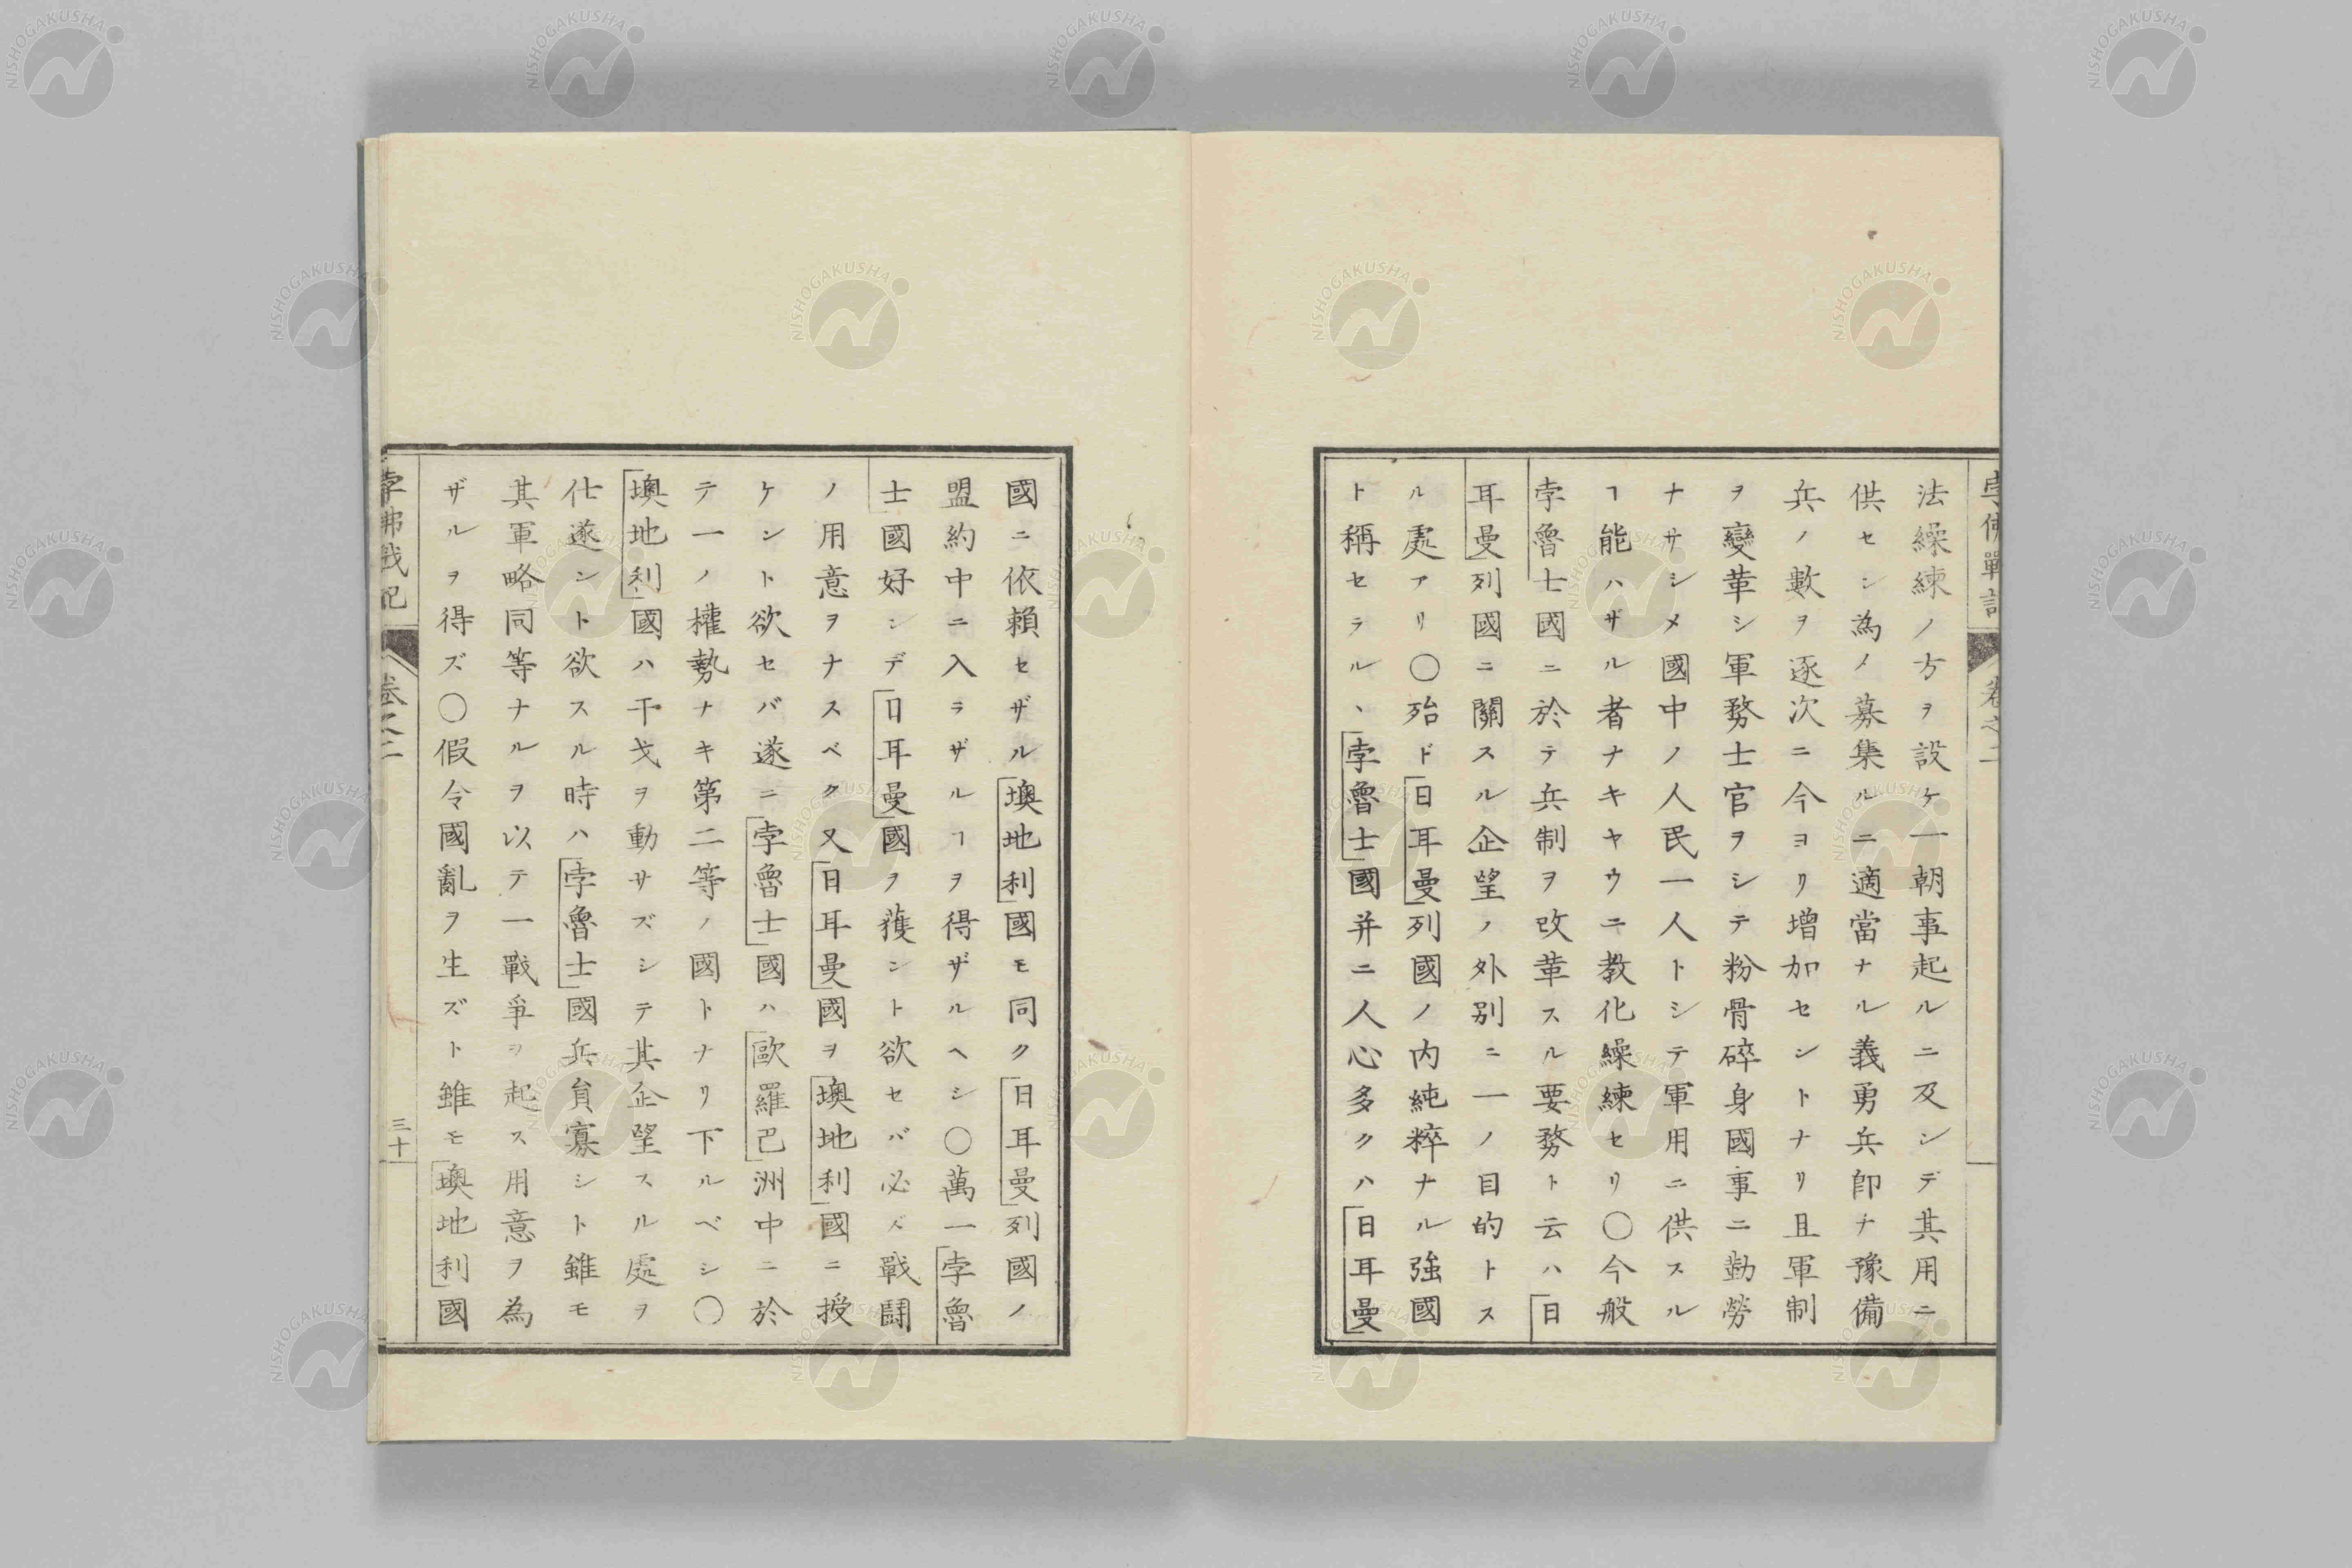 孛佛戰記 卷之二
法繰練ノ方ヲ設ケ一朝事起ルニ及ンデ其用ニ
供セシ為メ募集ルニ適當ナル義勇兵卽チ豫備
兵ノ數ヲ逐次ニ今ヨリ增加セントナリ且軍制
ヲ變革シ軍務士官ヲシテ粉骨碎身國事ニ勤勞
ナサシメ國中ノ人民一人トシテ軍用ニ供スル
ヿ能ハザル者ナキヤウニ教化繰練セリ〇今般
孛魯士國ニ於テ兵制ヲ改革スル要務ト云ハ日
耳曼列國ニ關スル企望ノ外別ニ一ノ目的トス
ル處アリ〇殆ド日耳曼列國ノ内純粹ナル強國
ト稱セラル、孛魯士國并ニ人心多クハ日耳曼
國ニ依賴セザル墺地利國モ同ク日耳曼列國ノ
盟約中ニ入ラザルヿヲ得ザルヘシ〇萬一孛魯
士國好ンデ日耳曼國ヲ獲ント欲セバ必ズ戰鬪
ノ用意ヲナスベク又日耳曼國ヲ墺地利國ニ授
ケント欲セバ遂ニ孛魯士國ハ歐羅巴洲中ニ於
テ一ノ權勢ナキ第二等ノ國トナリ下ルベシ〇
墺地利國ハ干戈ヲ動サズシテ其企望スル處ヲ
仕遂ント欲スル時ハ孛魯士國兵負寡シト雖モ
其軍略同等ナルヲ以テ一戰爭ヲ起ス用意ヲ為
ザルヲ得ズ〇假令國亂ヲ生ズト雖モ墺地利國
孛佛戰記 卷之二 三十
NISHOGAKUSHA